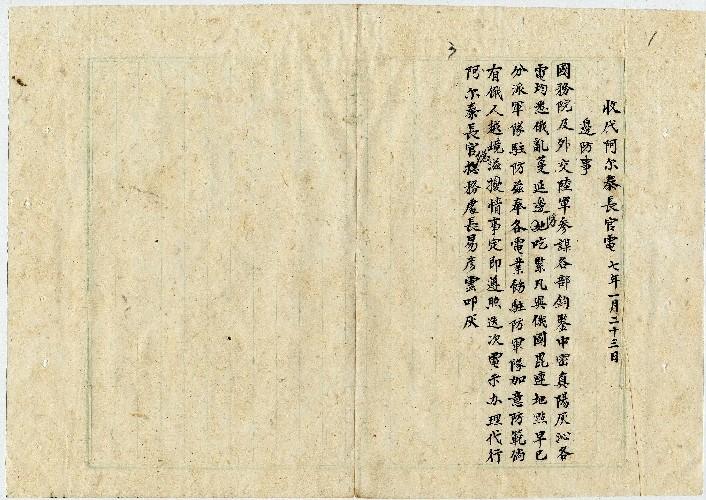 1
收代阿尔泰長官電 七年一月二十三日
邊防事
國務院及外交陸軍參謀各部鈞鑒中密真陽灰沁各
電均悉俄亂蔓延邊防吃緊凡與俄國毘連地點早已
分派軍隊駐防茲奉各電業飭駐防軍隊加意防範倘
有俄人越境滋擾情事定即遵照迭次電示办理代行
阿尔泰長官總務處長易彥雲叩灰
3